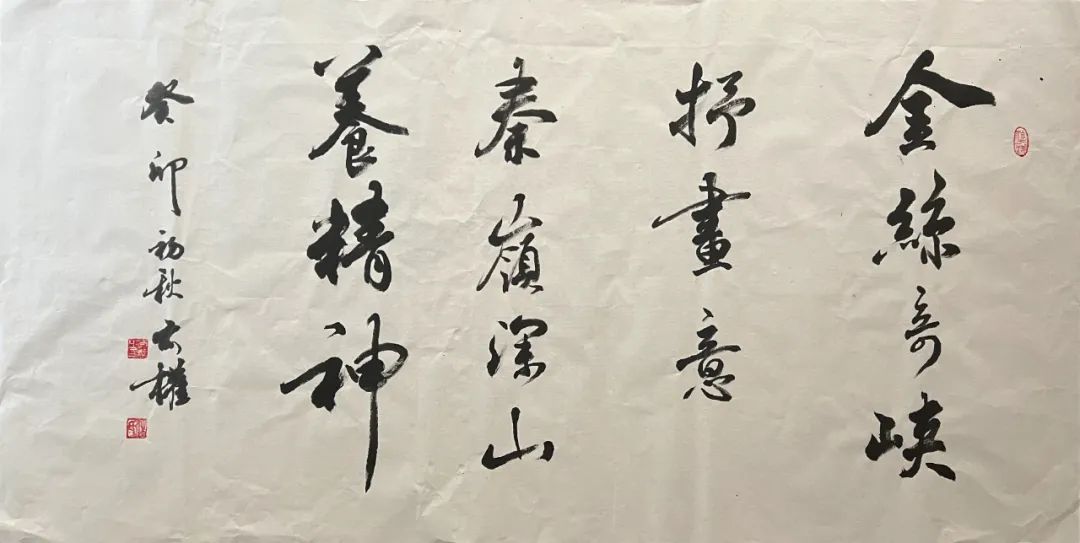 金絲奇峽
抒畫意
秦嶺深山
養精神
癸卯初秋大權